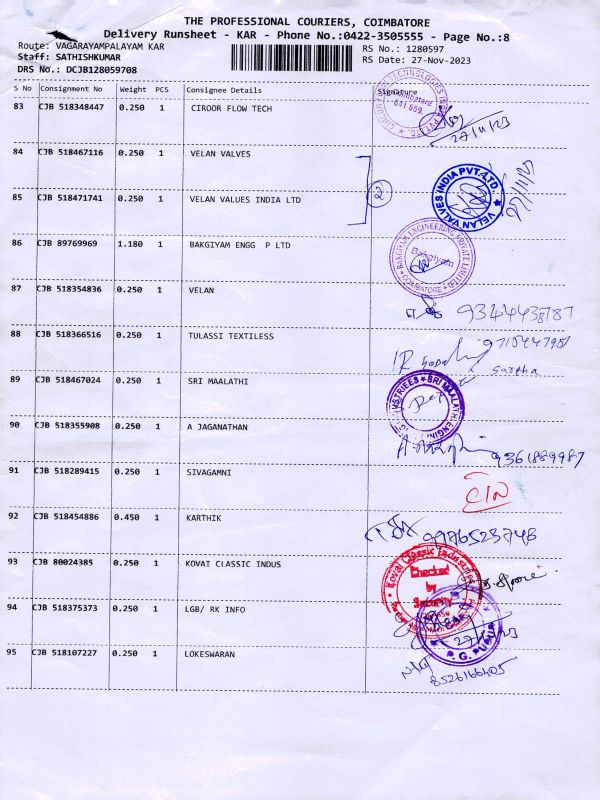 THE PROFESSIONAL COURIERS, COIMBATORE
Delivery Runsheet - KAR - Phone No.:0422-3505555 - Page No.:8
Route: VAGARAYAMPALAYAM KAR
RS No.: 1280597
Staff: SATHISHKUMAR
RS Date: 27-Nov-2023
DRS No.: DCJB128059708
S No Consignment No Weight PCS Consignee Details Signature
83 CJB 518348447 0.250 1 CIROOR FLOW TECH
27/11/23
84 CJB 518467116 0.250 1 VELAN VALVES
85 CJB 518471741 0.250 1 VELAN VALUES INDIA LTD
22
VELAN VALVES INDIA PVT. LTD.
27/11/23
86 CJB 89769969 1.180 1 BAKGIYAM ENGG P LTD
BAKGIYAM ENGINEERING PRIVATE LIMITED
COIMBATORE
87 CJB 518354836 0.250 1 VELAN
88 CJB 518366516 0.250 1 TULASSI TEXTILESS
89 CJB 518467024 0.250 1 SRI MAALATHI
SRI MAALATHI
90 CJB 518355908 0.250 1 A JAGANATHAN
9361889987
91 CJB 518289415 0.250 1 SIVAGAMNI
92 CJB 518454886 0.450 1 KARTHIK
9976523748
93 CJB 80024385 0.250 1 KOVAI CLASSIC INDUS
Kovai Classic Industries
Checked
by
Security
94 CJB 518375373 0.250 1 LGB/ RK INFO
27/11/23
P. G. PUDUR
95 CJB 518107227 0.250 1 LOKESWARAN
8526166405